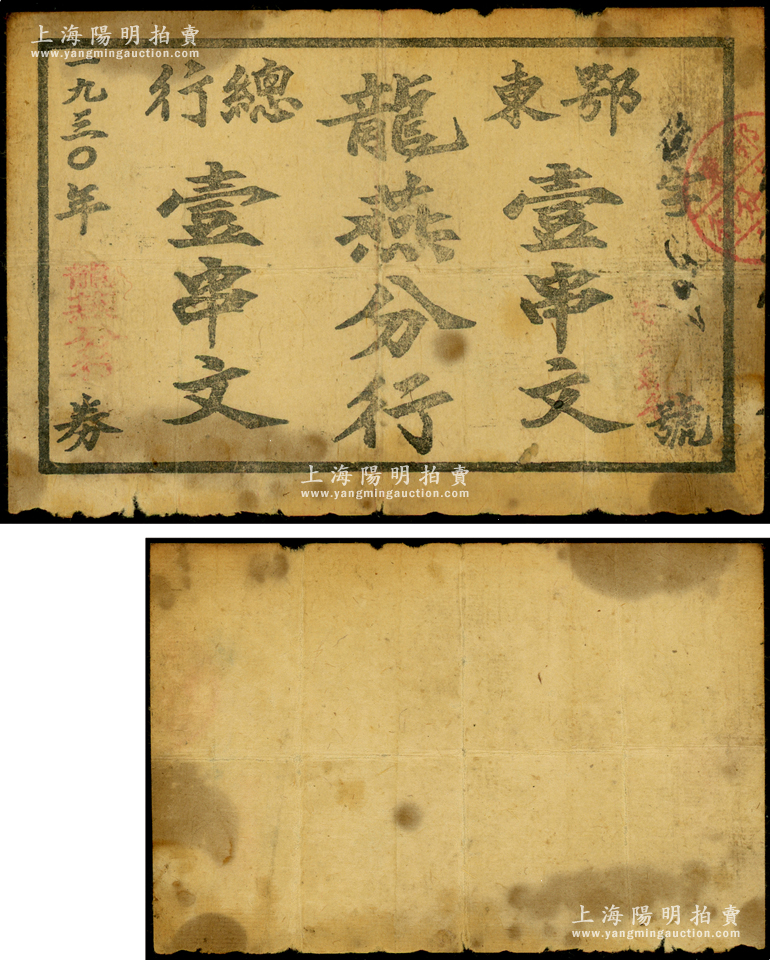 上海陽明拍賣
www.yangmingauction.com
鄂東
總行
號
壹串文
龍燕分行
壹串文
一九三〇年
券
上海陽明拍賣
www.yangmingauction.com
上海陽明拍賣
www.yangmingauction.com